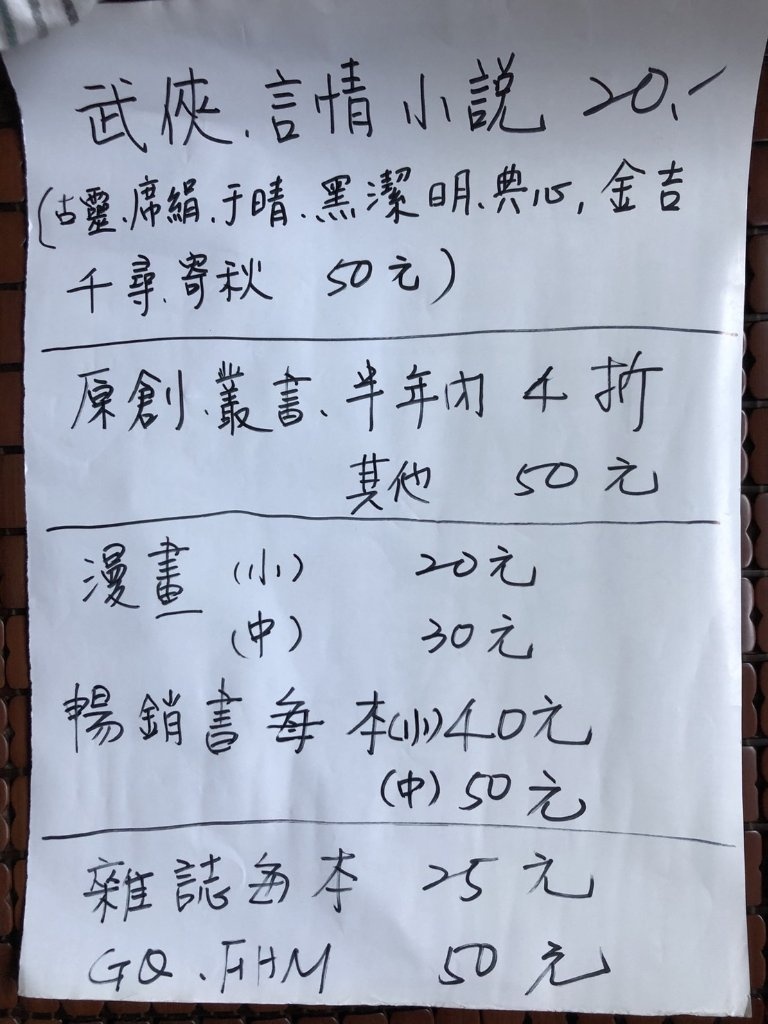 武俠、言情小說 20.-
(古靈、席絹、于晴、黑潔明、典心, 金吉
千尋、寄秋 50元)
原創、叢書、半年內 4折
其他 50元
漫畫 (小) 20元
(中) 30元
暢銷書每本(小)40元
(中) 50元
雜誌每本 25元
GQ、FHM 50元